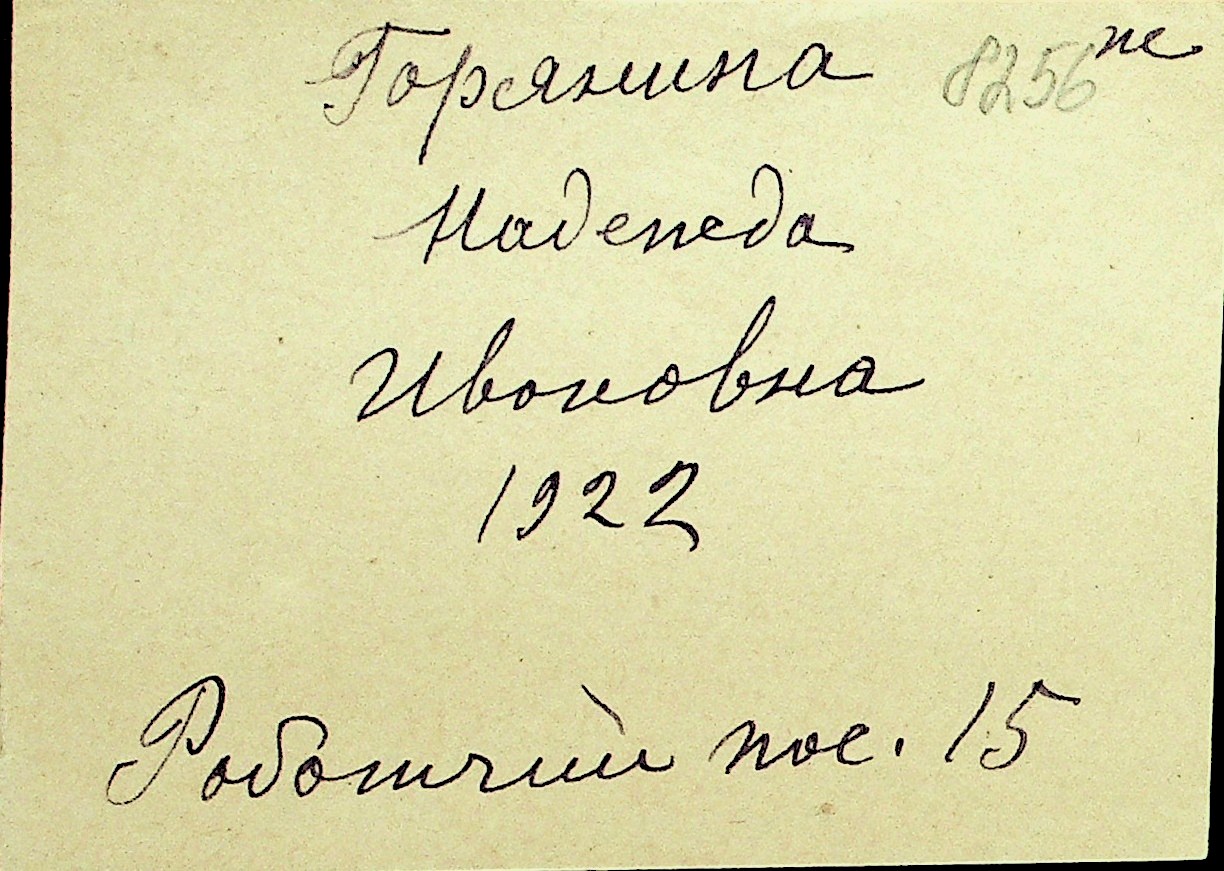 Горянина 8256 ж
Надежда
Ивановна
1922
Рабочий пос. 15